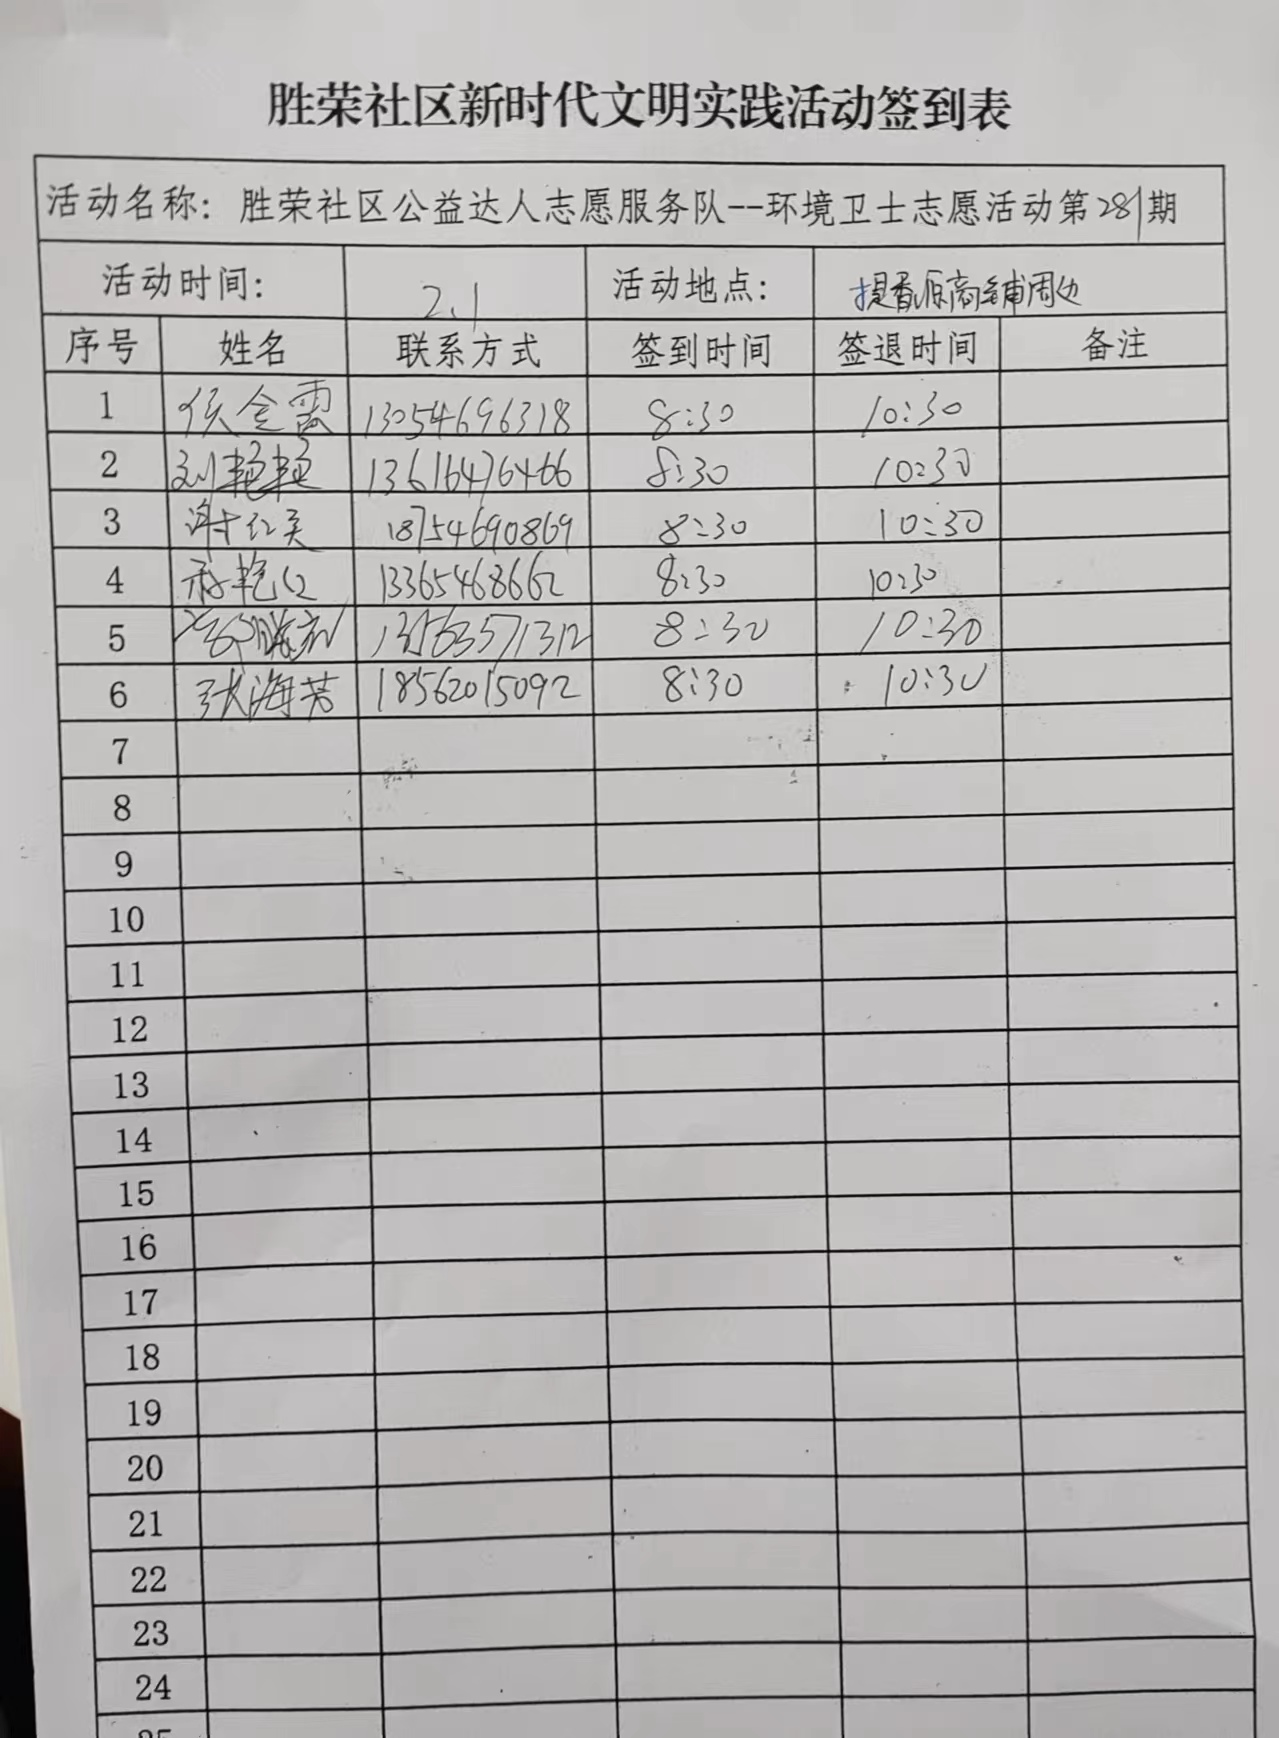 胜荣社区新时代文明实践活动签到表
活动名称：胜荣社区公益达人志愿服务队--环境卫士志愿活动第281期
活动时间： 2.1 活动地点： 提香原商铺周边
序号 姓名 联系方式 签到时间 签退时间 备注
1 侯会霞 13054696318 8:30 10:30
2 刘艳艳 13616476466 8:30 10:30
3 谢红美 18754690869 8:30 10:30
4 艳红 13365468662 8:30 10:30
5 8:30 10:30
6 张海芳 18562015092 8:30 10:30
7
8
9
10
11
12
13
14
15
16
17
18
19
20
21
22
23
24